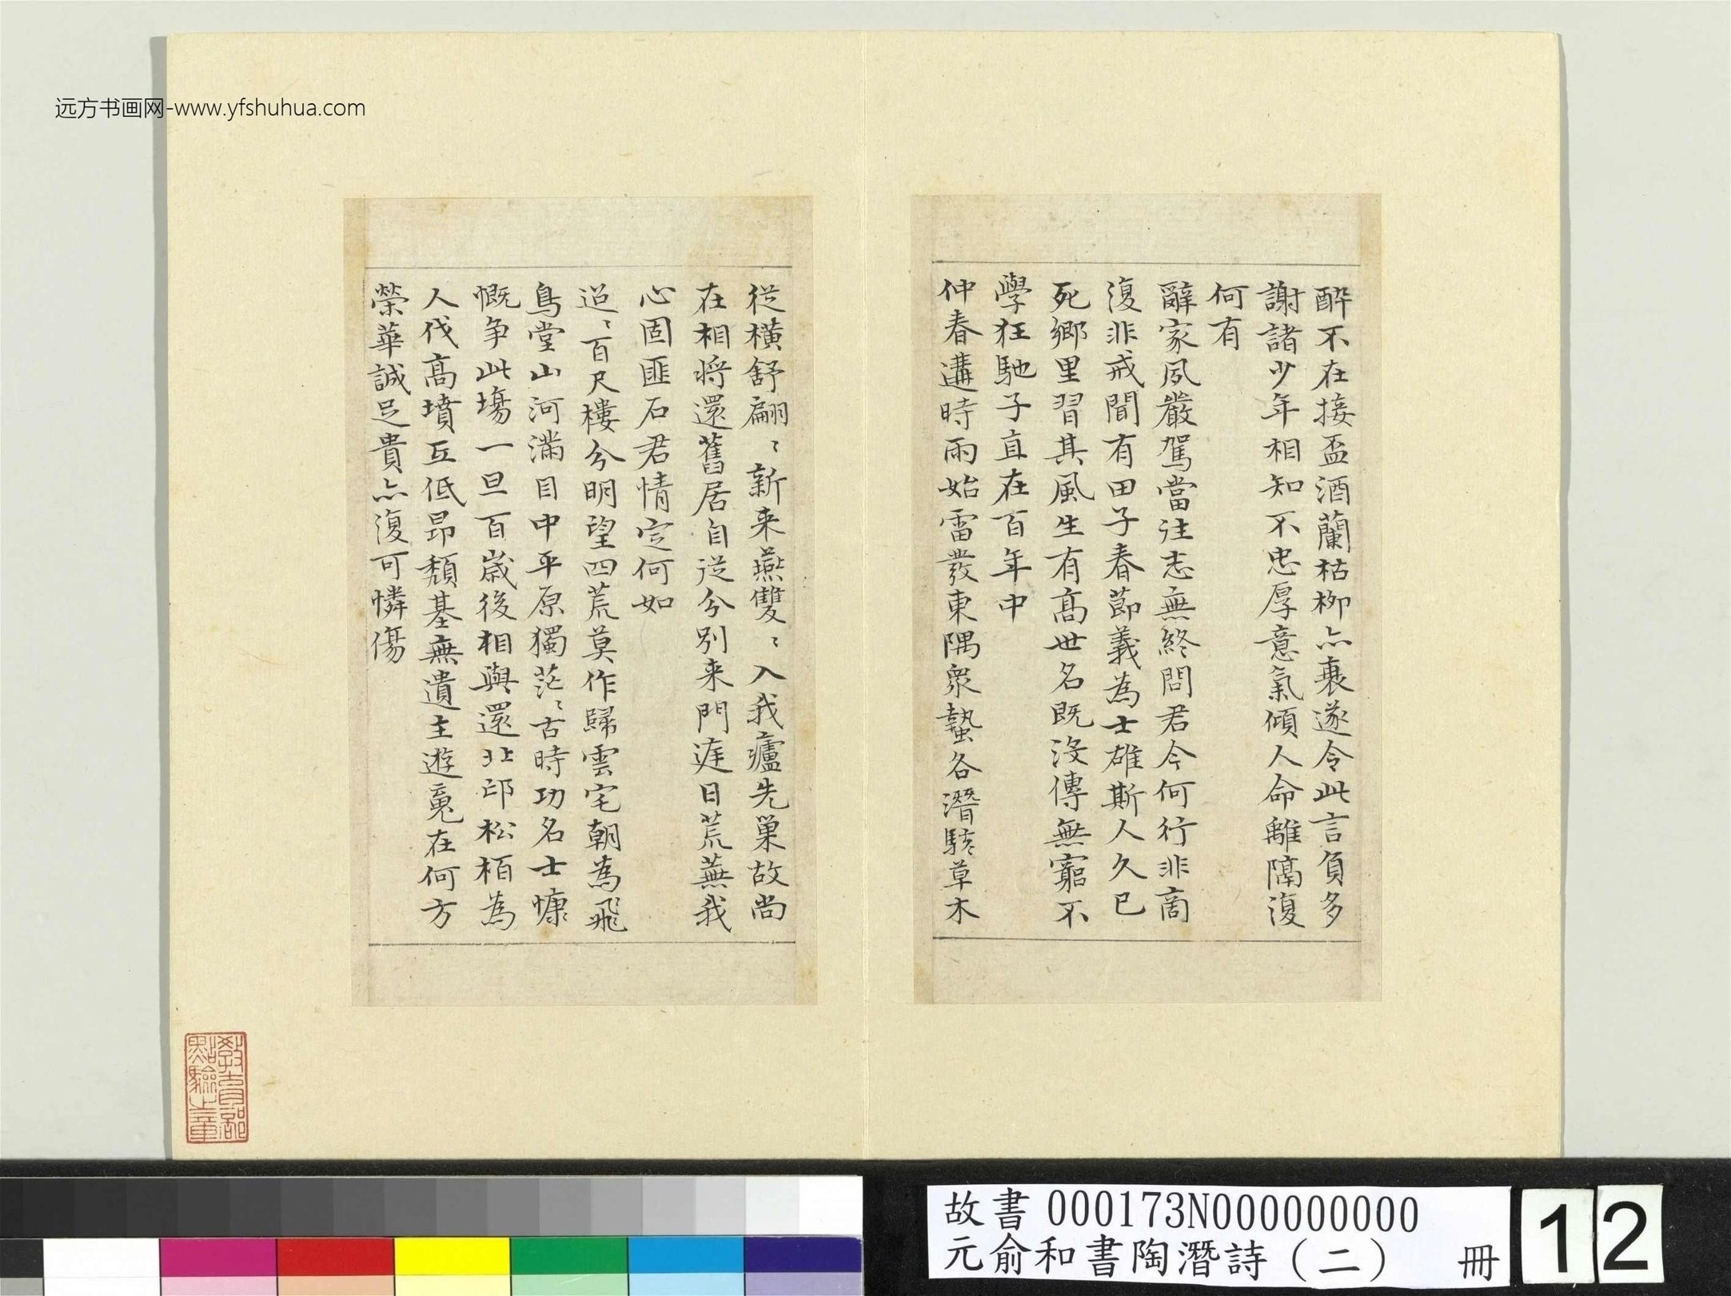 远方书画网-www.yfshuhua.com
醉不在接盃酒蘭枯柳亦衰遂令此言負多
謝諸少年相知不忠厚意氣傾人命離隔復
何有
辭家夙嚴駕當往志無終問君今何行非商
復非戎聞有田子春節義為士雄斯人久已
死鄉里習其風生有高世名既沒傳無窮不
學狂馳子直在百年中
仲春遘時雨始雷發東隅衆蟄各潛駭草木
從橫舒翩〻新来燕雙〻入我廬先巢故尚
在相将還舊居自從分別来門庭日荒蕪我
心固匪石君情定何如
迢〻百尺樓分明望四荒莫作歸雲宅朝為飛
鳥堂山河滿目中平原獨茫〻古時功名士慷
慨爭此場一旦百歲後相與還北邙松栢為
人伐高墳互低昂頹基無遺主遊魂在何方
榮華誠足貴亦復可憐傷
教育部
點驗之章
故書 000173N000000000
元俞和書陶潛詩(二) 冊
12